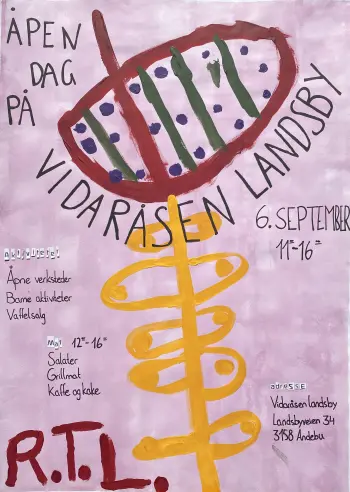 ÅPEN
DAG
PÅ
VIDARÅSEN LANDSBY
6. SEPTEMBER
11⁰⁰-16⁰⁰
Aktiviteter
Åpne verksteder
Barne aktiviteter
Vaffelsalg
Mat 12⁰⁰-16⁰⁰
Salater
Grillmat
Kaffe og kake
adresse:
Vidaråsen landsby
Landsbyveien 34
3158 Andebu
R.T.L.